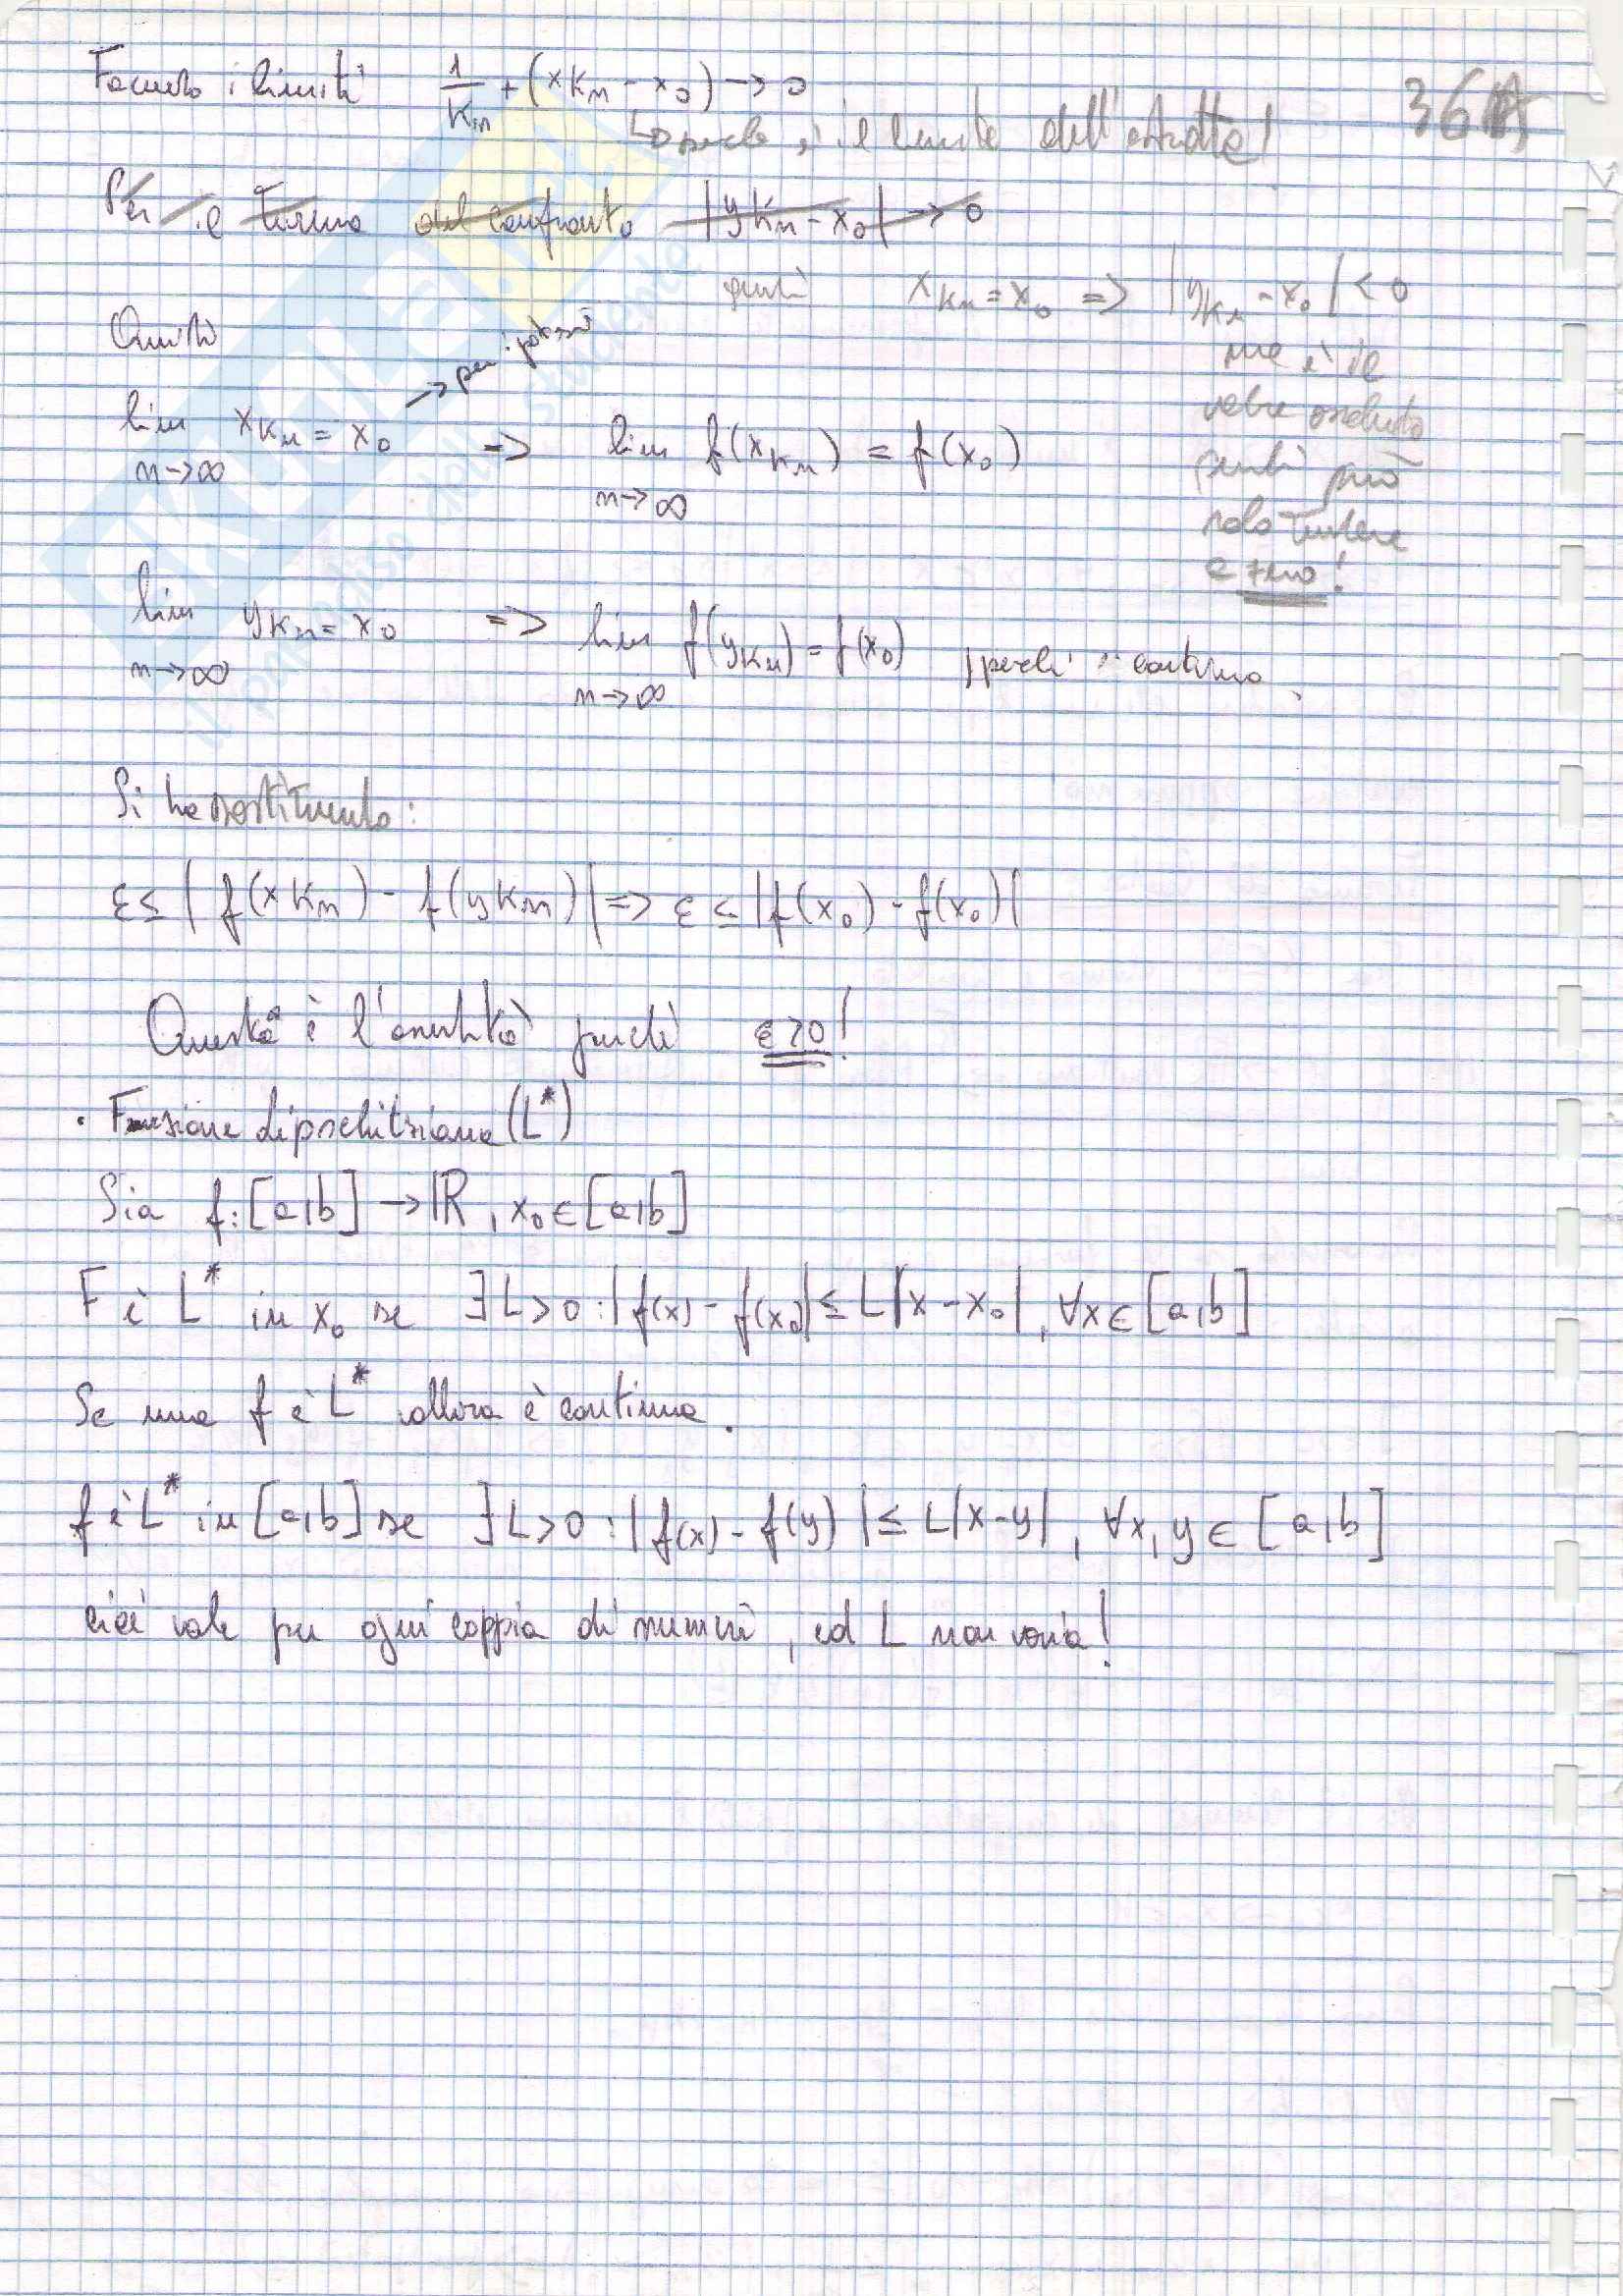 Facendo i limiti 1/Kn + (xKn - x0) → 0
36
↳ perché è il limite dell'estratta!
Per il Teorema del confronto |yKn - x0| → 0
quindi xKn = x0 => |yKn - x0| < 0
ma è il
valore assoluto
quindi può
solo tendere
a zero!
Quindi
→ per ipotesi
lim xKn = x0 => lim f(xKn) = f(x0)
n→∞ n→∞
lim yKn = x0 => lim f(yKn) = f(x0) perché è continua.
n→∞ n→∞
Si ha sostituendo:
ε ≤ |f(xKn) - f(yKn)| => ε ≤ |f(x0) - f(x0)|
Questa è l'assurdità perché ε>0!
. Funzione Lipschitziana (L*)
Sia f: [a,b] → ℝ, x0 ∈ [a,b]
F è L* in x0 se ∃ L>0 : |f(x) - f(x0)| ≤ L|x - x0|, ∀x ∈ [a,b]
Se una f è L* allora è continua.
f è L* in [a,b] se ∃ L>0 : |f(x) - f(y)| ≤ L|x-y|, ∀x, y ∈ [a,b]
cioè vale per ogni coppia di numeri, ed L non varia!